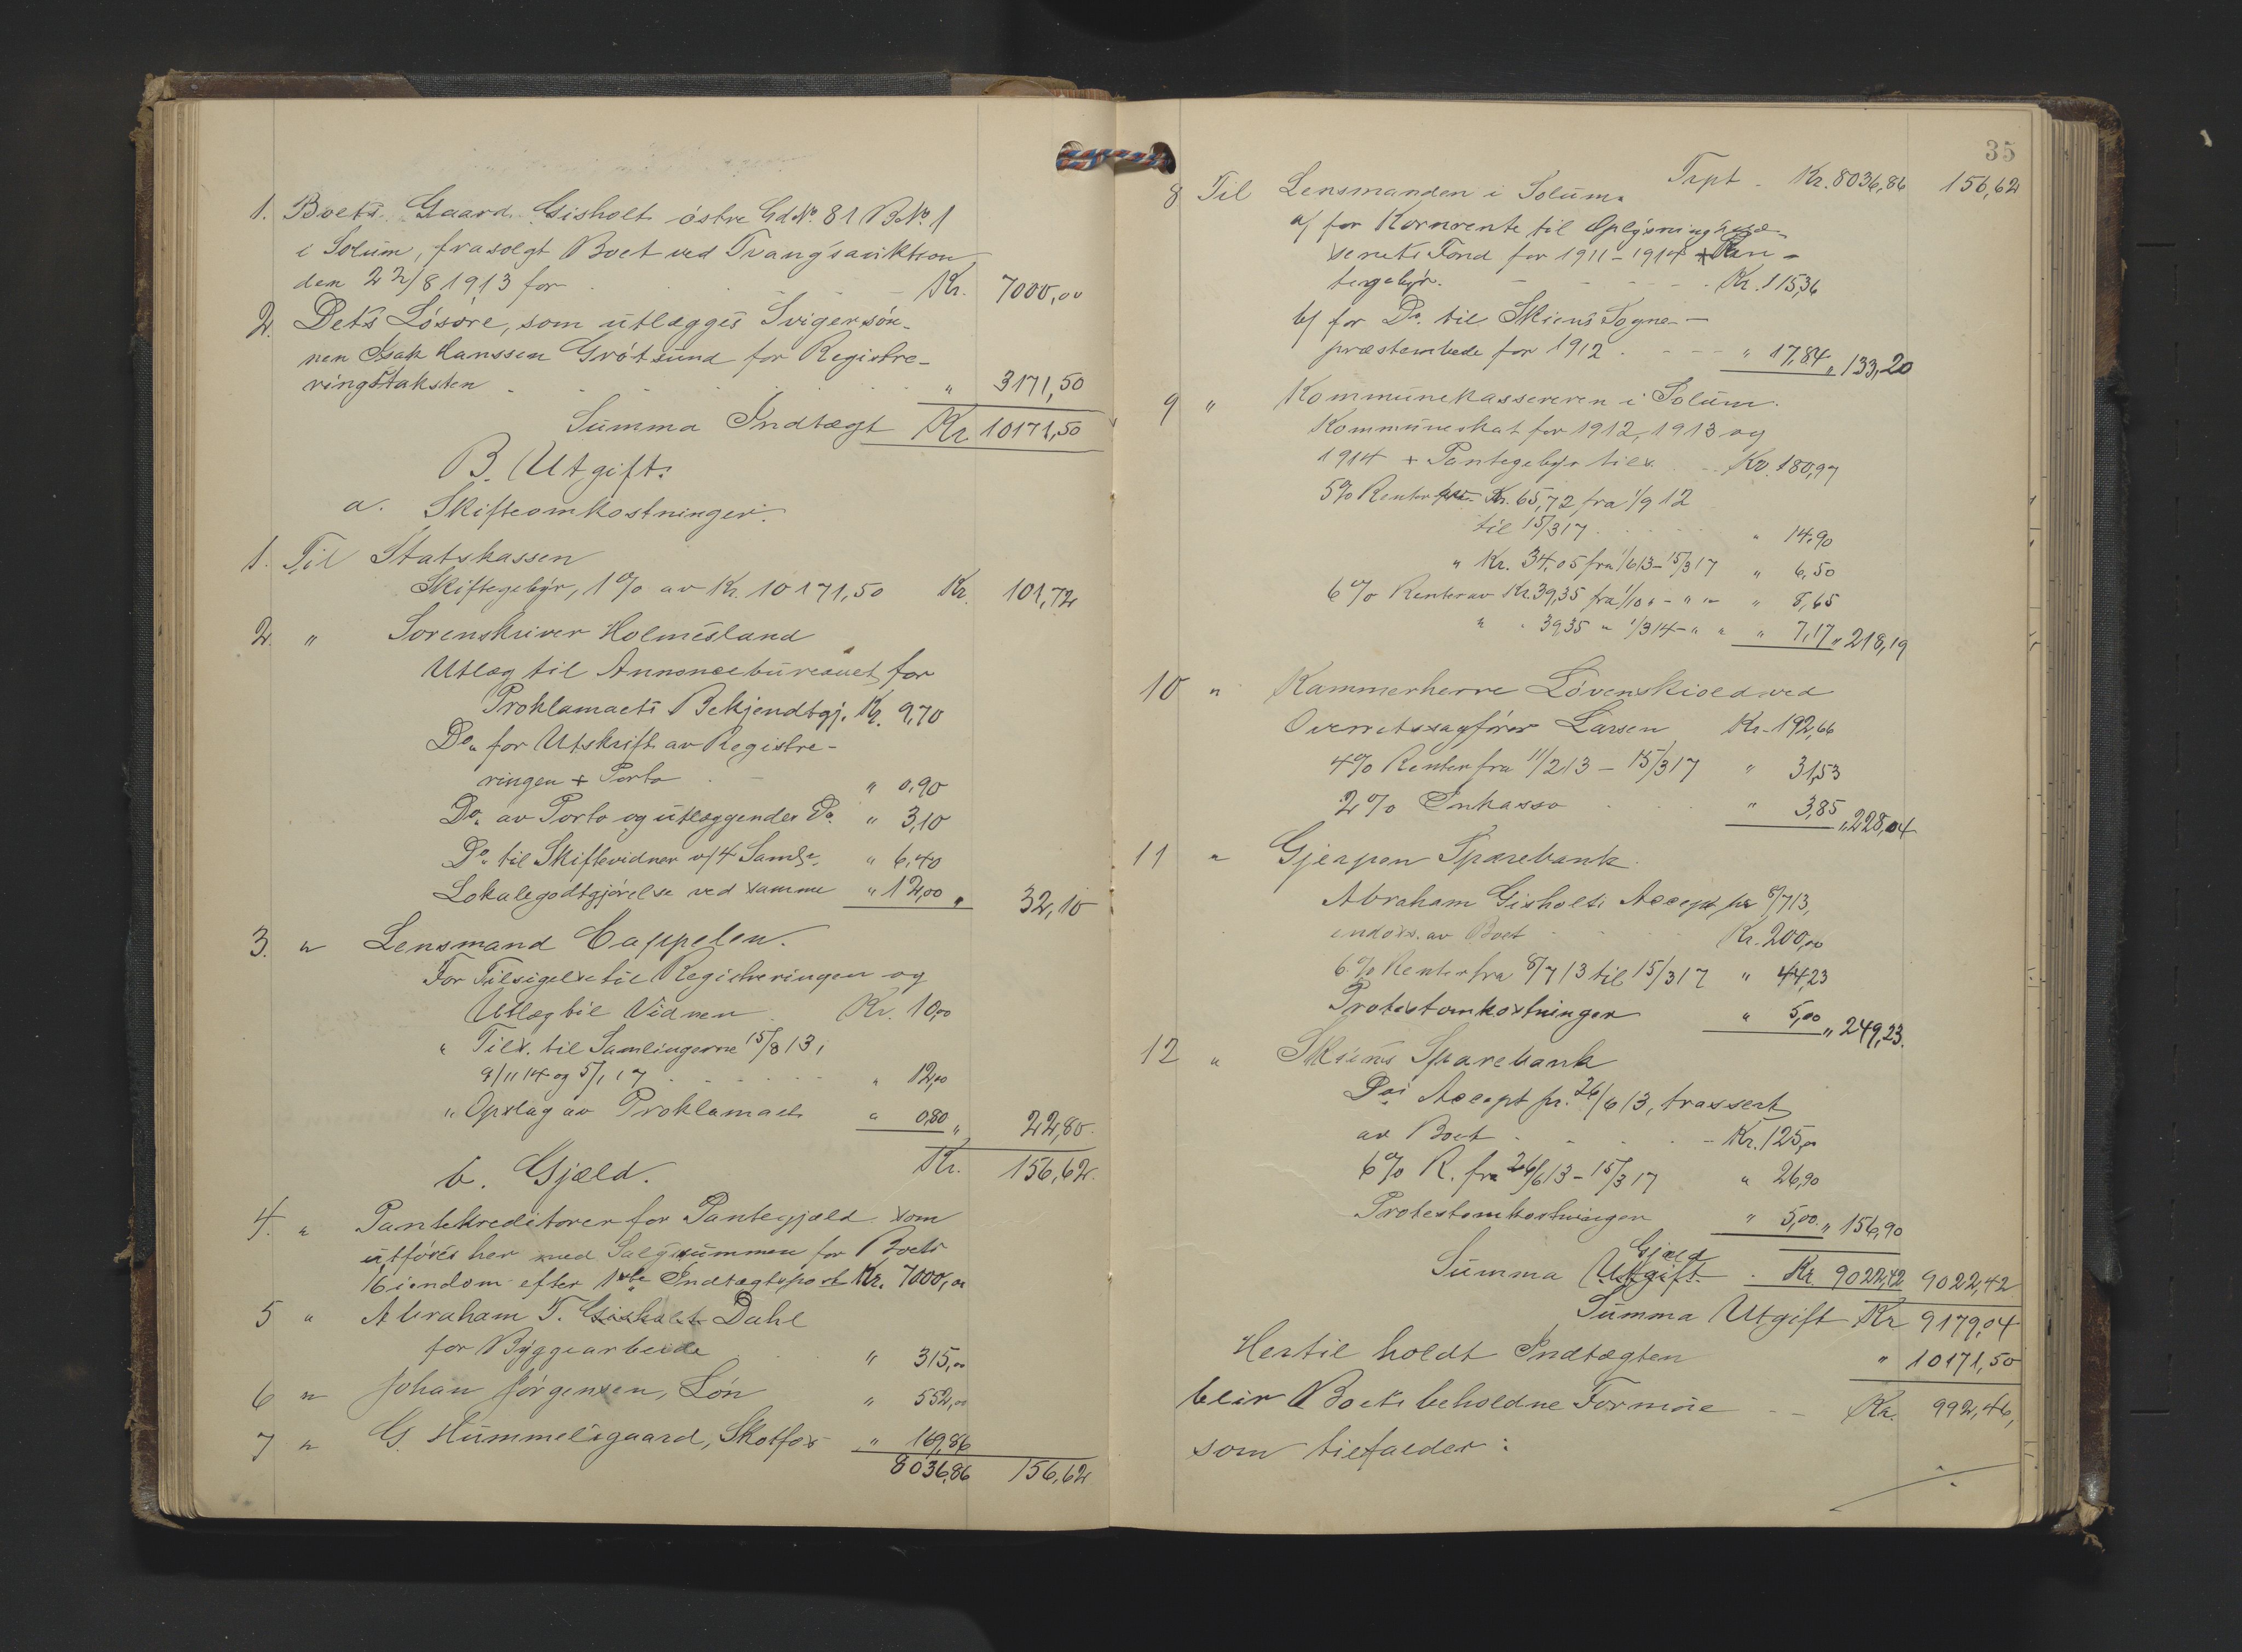 1. Boets Gaard Gisholt östre Gd.No. 81 B.No. 1
i Solum, frasolgt Boet ved Tvangsauktion
den 22/8 1913 for Kr. 7000,00
2. Dets Lösöre, som utlægges Svigersön-
nen Isak Hanssen Grötsund for Registre-
ringstaksten " 3171,50
Summa Indtægt Kr 10171,50
B. Utgift:
a. Skifteomkostninger.
1. Til Statskassen
Skiftegebyr, 1% av Kr. 10171,50 Kr. 101,72
2. " Sorenskriver Holmesland
Utlæg til Annoncebureauet for
Proklamaets Bekjendtgj. Kr. 9,70
Do. for Utskrift av Registre-
ringen + Porto " 0,90
Do. av Porto og utlæggendes Do. " 3,10
Do. til Skiftevidner v/4 Saml. " 6,40
Lokalegodtgjörelse ved samme " 12,00 " 32,10
3. " Lensmand Cappelen.
For Tilsigelse til Registreringen og
Utlæg til Vidnen Kr. 10,00
" Tils. til Samlingerne 15/8 13,
9/11 14 og 5/1 17 " 12,00
" Opslag av Proklamaet " 0,80 " 22,80.
Kr. 156,62.
b. Gjæld.
4. " Pantekreditorer for Pantegjæld som
utföres her med Salgssummen for Boets
Eiendom efter 1ste Indtægtspost Kr. 7000,00
5 " Abraham T. Gisholt Dahl
for Byggearbeide " 315,00
6 " Johan Jörgensen, Lön " 552,00
7 " G. Hummelsgaard, Skotfos " 169,86
8036,86 156,62
35
Trpt. Kr. 8036,86 156,62
8 Til Lensmanden i Solum.
a/ for Kornrente til Oplysningsvæ-
senets Fond for 1911-1914 + Pan-
tegebyr. Kr. 115,36
b/ for Do. til Skiens Sogne-
præstembede for 1912 " 17,84 " 133,20
9 " Kommunekassereren i Solum.
Kommuneskat for 1912, 1913 og
1914 + Pantegebyr tils. Kr. 180,97
5% Renter av Kr. 65,72 fra 1/9 12
til 15/3 17 " 14,90
" Kr. 34,05 fra 1/6 13 - 15/3 17 " 6,50
6% Renter av Kr. 39,35 fra 1/10 " - " " " 8,65
" " 39,35 " 1/3 14 - " " " 7,17 " 218,19
10 " Kammerherre Lövenskiold ved
Overretssagförer Larsen Kr. 192,66
4% Renter fra 11/2 13 - 15/3 17 " 31,53
2% Inkasso " 3,85 " 228,04
11 " Gjerpen Sparebank.
Abraham Gisholts Accept pr 8/7 13,
endoss. av Boet Kr. 200,00
6% Renter fra 8/7 13 til 15/3 17 " 44,23
Protestomkostninger " 5,00 " 249,23.
12 " Skiens Sparebank
Dos Accept pr. 26/6 13, trassert
av Boet Kr. 125,00
6% R. fra 26/6 13 - 15/3 17 " 26,90
Protestomkostninger " 5,00 " 156,90
Summa Utgift Gjæld Kr 9022,42 9022,42
Summa Utgift Kr 9179,04
Hertil holdt Indtægten " 10171,50
blir Boets beholdne Formue Kr. 992,46,
som tilfalder: